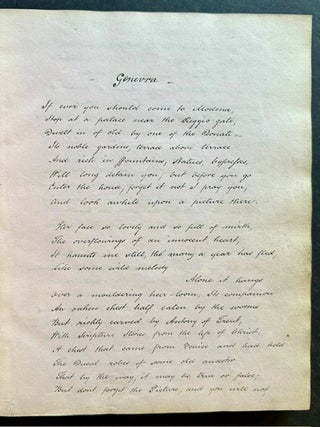 - Genevra -
If ever you should come to Modena,
Stop at a palace near the Reggio gate,
Dwelt in of old by one of the Donati -
Its noble gardens terrace above terrace
And rich in fountains, statues, cypresses,
Will long detain you; but before you go
Enter the house, forget it not I pray you,
And look awhile upon a picture there.
Her face so lovely and so full of mirth,
The overflowings of an innocent heart,
It haunts me still, tho' many a year has fled,
Like some wild melody
Alone it hangs
Over a mouldering heir-loom, its companion
An oaken chest half eaten by the worms
But richly carved by Antony of Trent,
With Scripture Stories from the life of Christ,
A chest that came from Venice and had held
The Ducal robes of some old ancestor
That by the way, it may be true or false;
But dont forget the Picture, and you will not